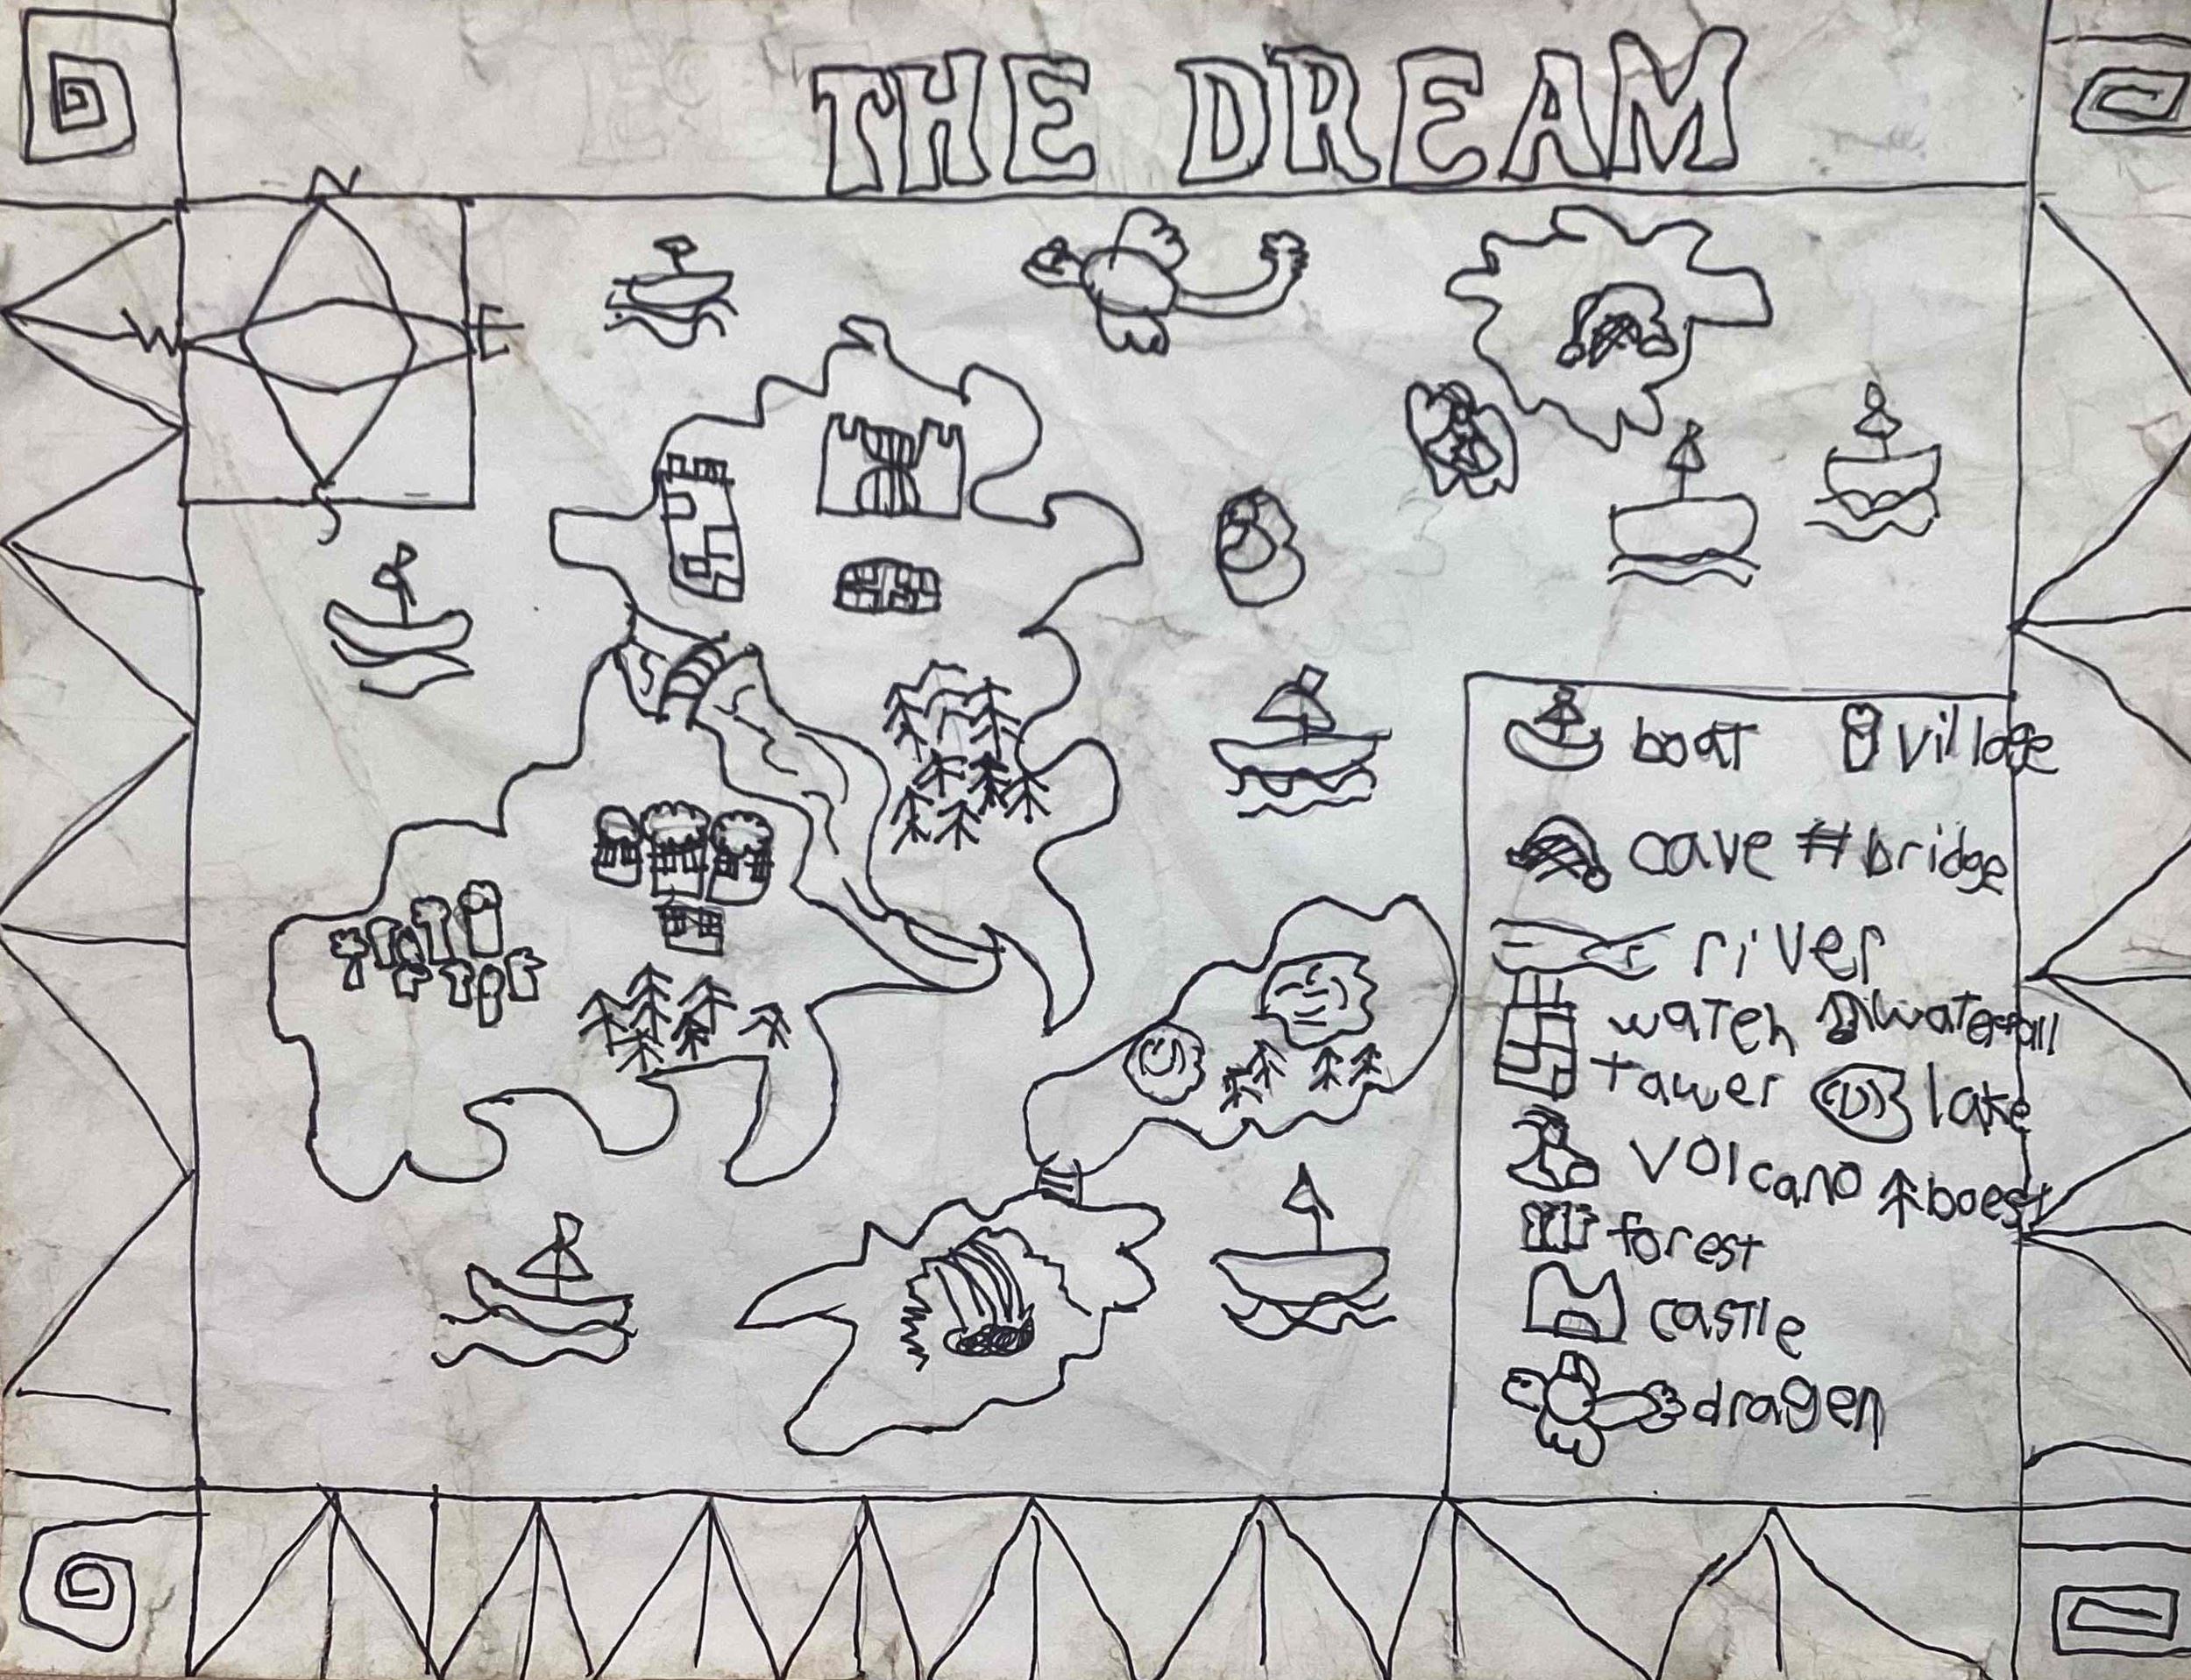 THE DREAM
N
W E
S
boat village
cave bridge
river
watch waterfall
tawer lake
volcano boest
forest
castle
dragen